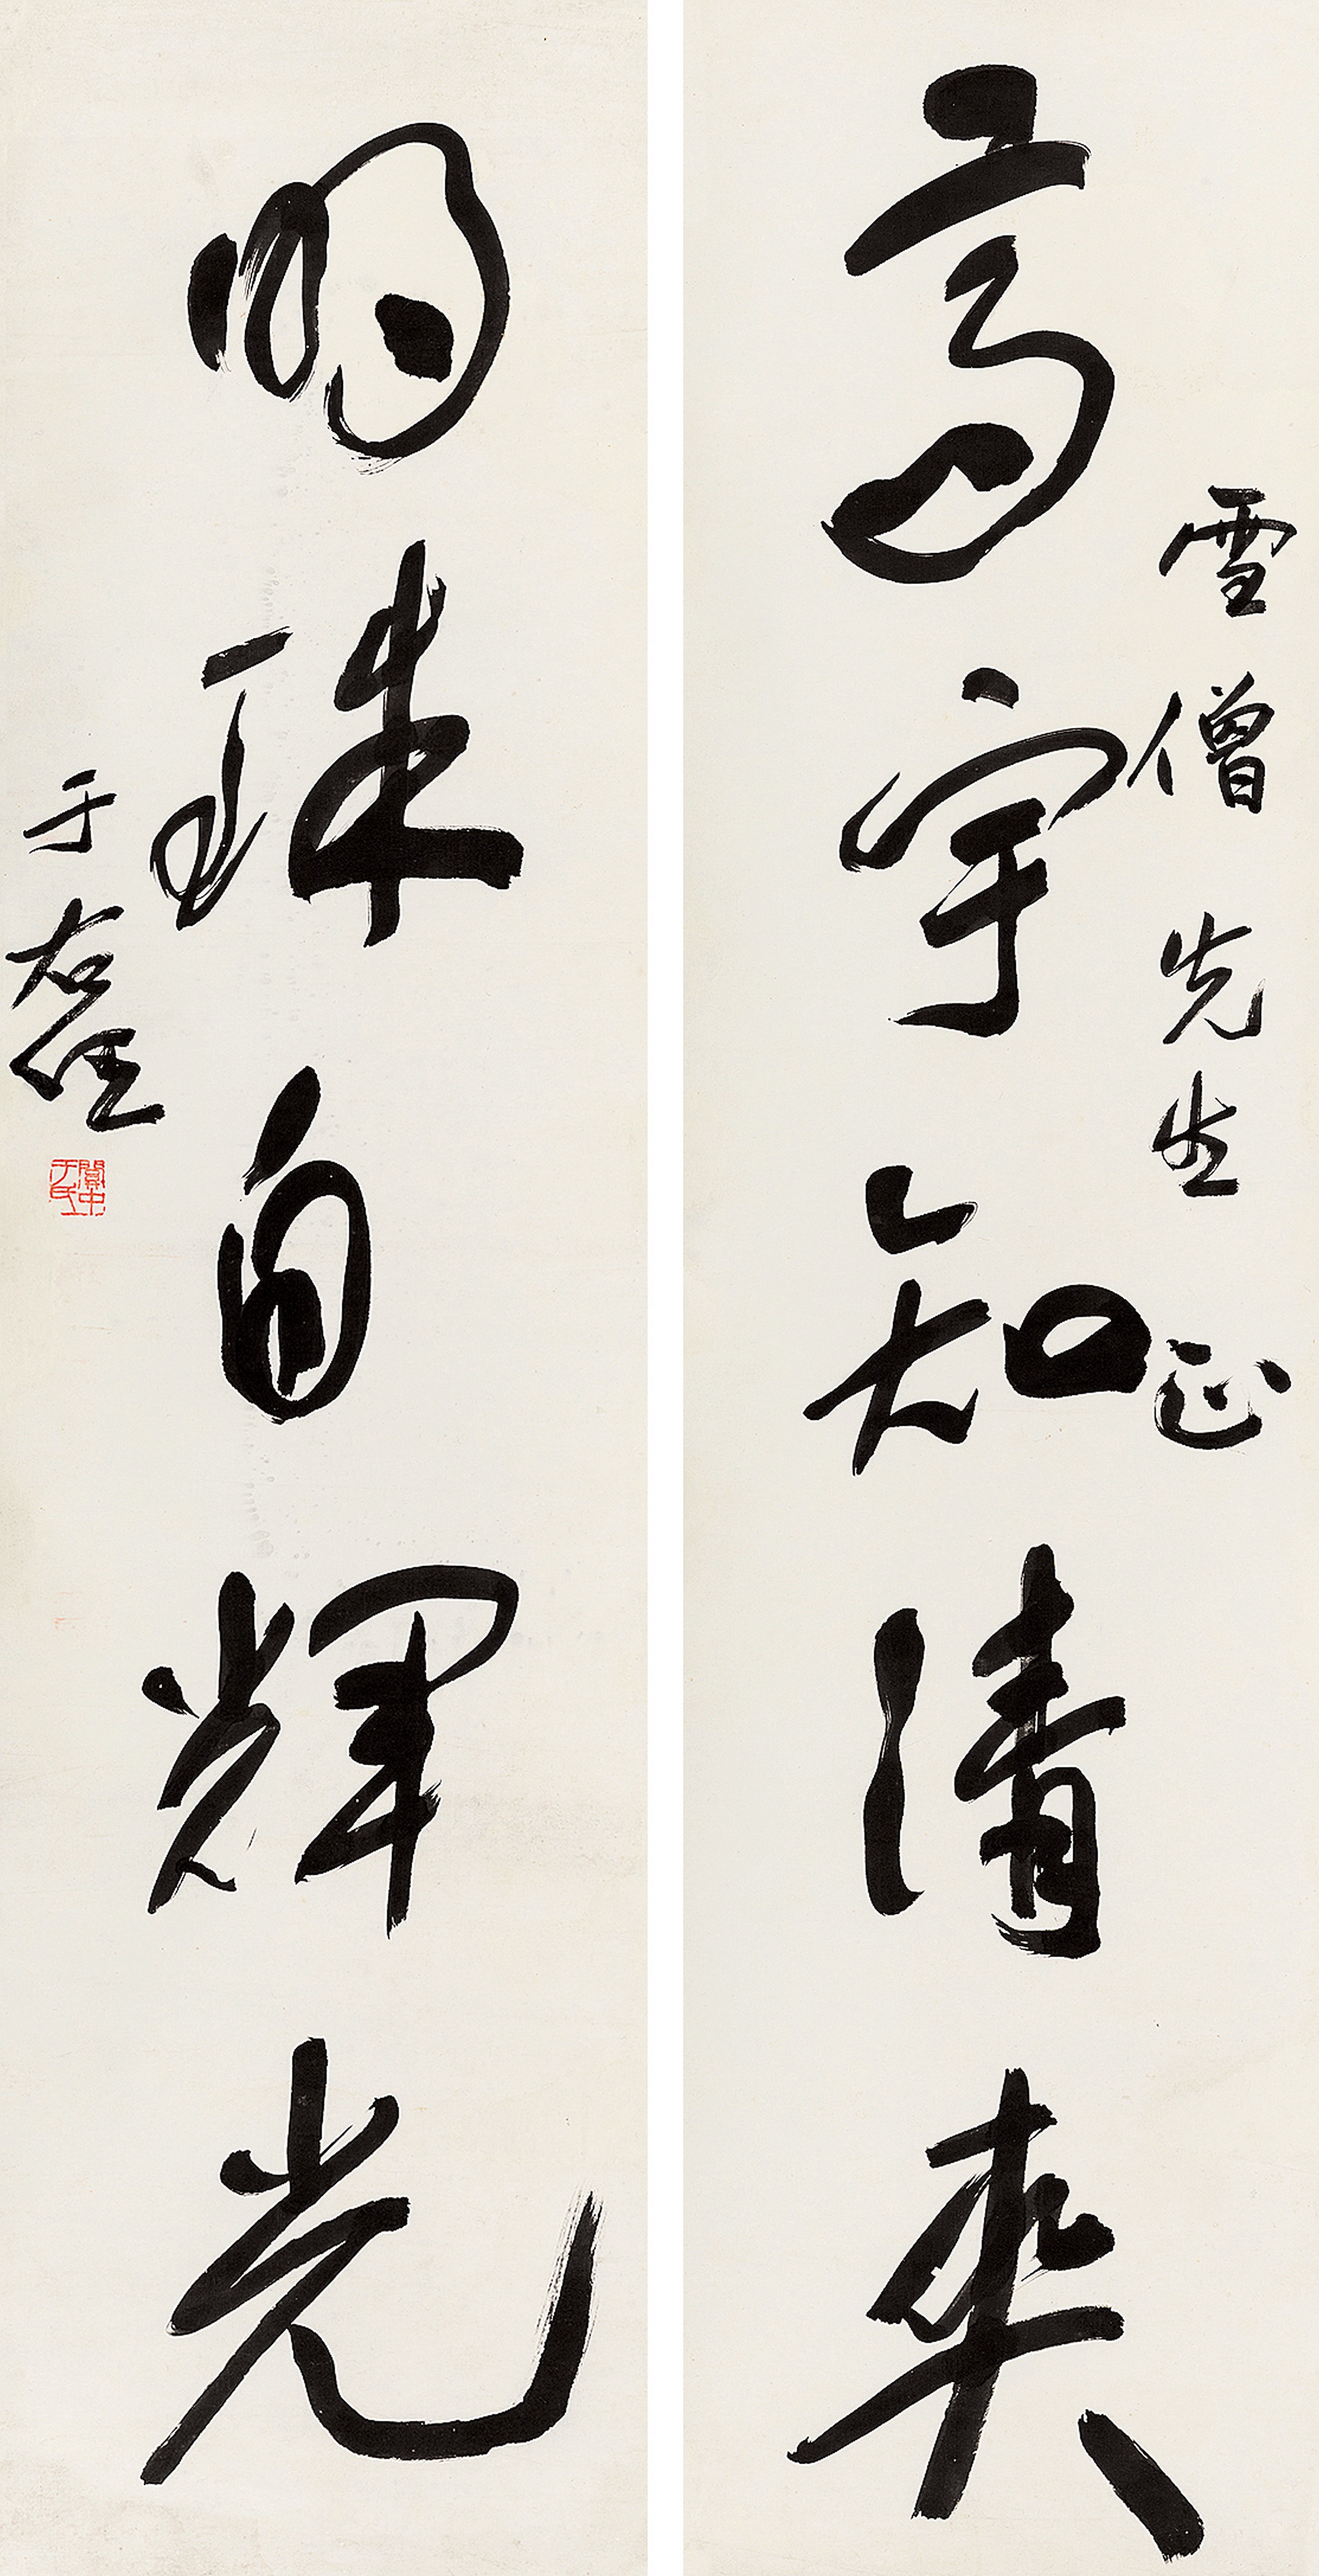 雪僧先生正
高宇知清爽
明珠自輝光
于右任
關中于氏